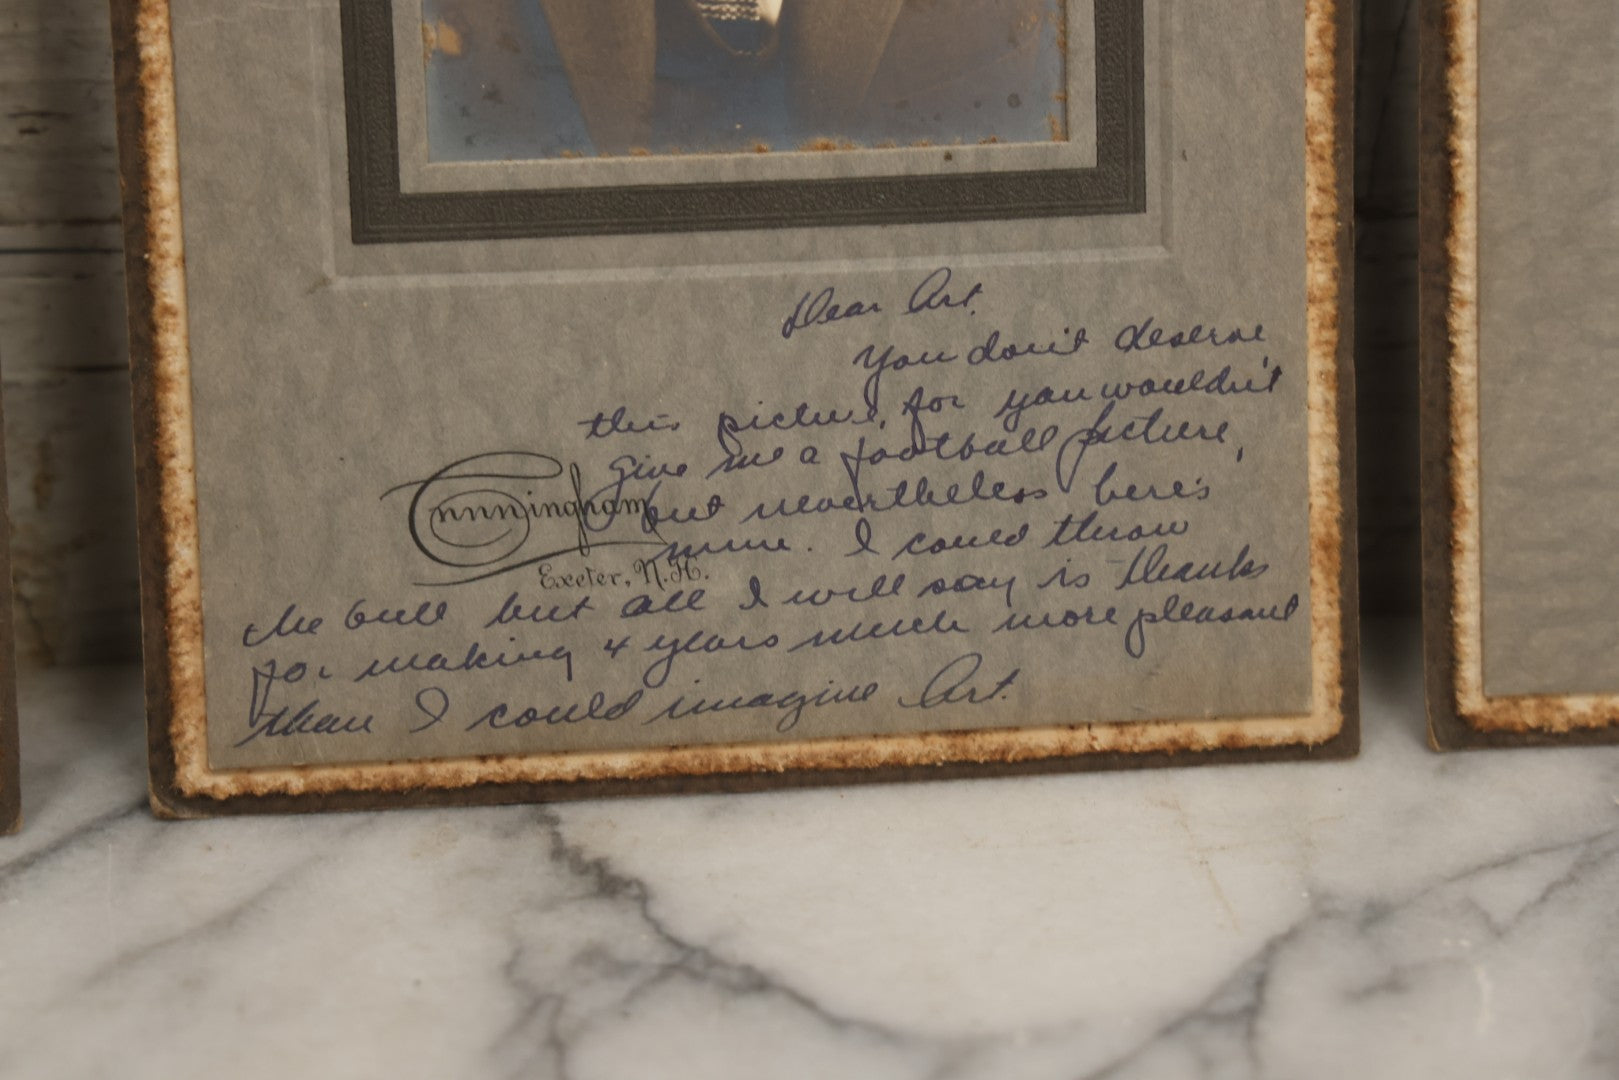 Dear Art.
You don't deserve
this picture, for you wouldn't
give me a football picture,
but nevertheless here's
mine. I could throw
the bull but all I will say is thanks
for making 4 years much more pleasant
than I could imagine Art.
Cunningham
Exeter, N.H.